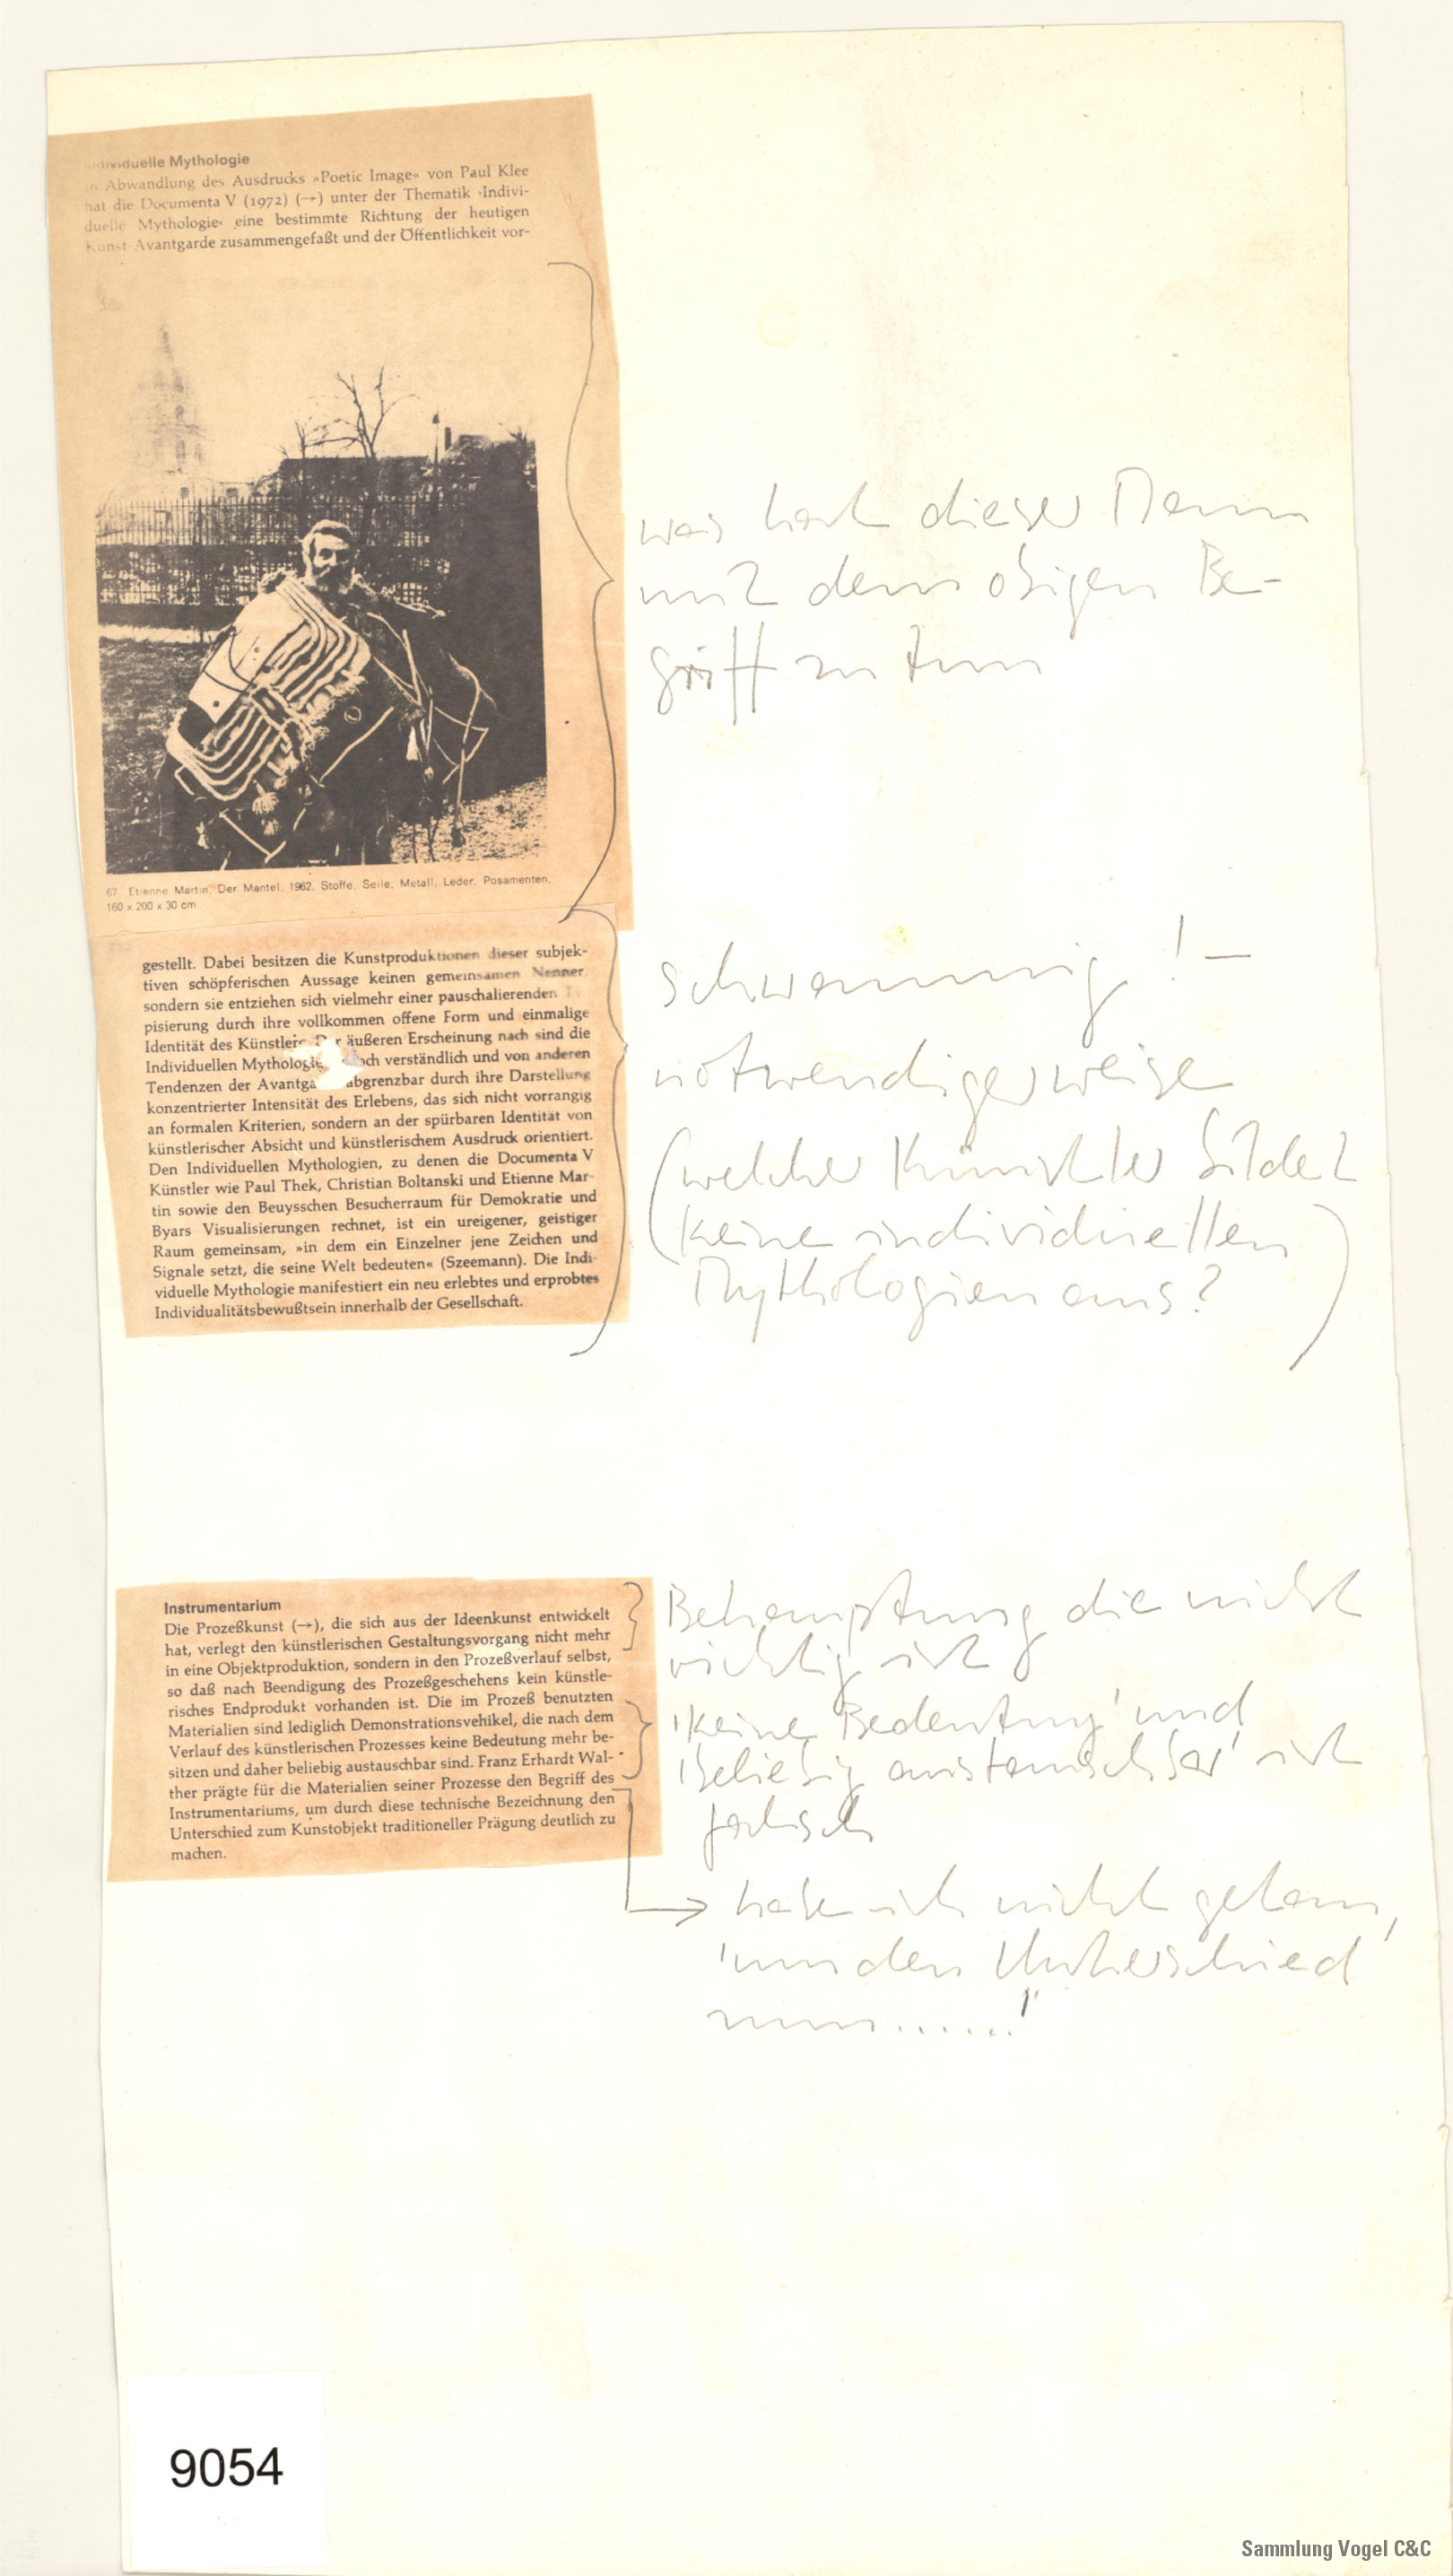 Individuelle Mythologie
in Abwandlung des Ausdrucks »Poetic Image« von Paul Klee
hat die Documenta V (1972) (→) unter der Thematik ›Indivi-
duelle Mythologie‹ eine bestimmte Richtung der heutigen
Kunst-Avantgarde zusammengefaßt und der Öffentlichkeit vor-
67 Etienne Martin, Der Mantel, 1962. Stoffe, Seile, Metall, Leder, Posamenten,
160 x 200 x 30 cm
was hat dieser Mann
mit dem obigen Be-
griff zu tun
gestellt. Dabei besitzen die Kunstproduktionen dieser subjek-
tiven schöpferischen Aussage keinen gemeinsamen Nenner,
sondern sie entziehen sich vielmehr einer pauschalierenden
pisierung durch ihre vollkommen offene Form und einmalige
Identität des Künstlers. Der äußeren Erscheinung nach sind die
Individuellen Mythologie och verständlich und von anderen
Tendenzen der Avantga abgrenzbar durch ihre Darstellung
konzentrierter Intensität des Erlebens, das sich nicht vorrangig
an formalen Kriterien, sondern an der spürbaren Identität von
künstlerischer Absicht und künstlerischem Ausdruck orientiert.
Den Individuellen Mythologien, zu denen die Documenta V
Künstler wie Paul Thek, Christian Boltanski und Etienne Mar-
tin sowie den Beuysschen Besucherraum für Demokratie und
Byars Visualisierungen rechnet, ist ein ureigener, geistiger
Raum gemeinsam, »in dem ein Einzelner jene Zeichen und
Signale setzt, die seine Welt bedeuten« (Szeemann). Die Indi-
viduelle Mythologie manifestiert ein neu erlebtes und erprobtes
Individualitätsbewußtsein innerhalb der Gesellschaft.
schwammig! –
notwendigerweise
(welcher Künstler bildet
keine individuellen
Mythologien aus?)
Instrumentarium
Die Prozeßkunst (→), die sich aus der Ideenkunst entwickelt
hat, verlegt den künstlerischen Gestaltungsvorgang nicht mehr
in eine Objektproduktion, sondern in den Prozeßverlauf selbst,
so daß nach Beendigung des Prozeßgeschehens kein künstle-
risches Endprodukt vorhanden ist. Die im Prozeß benutzten
Materialien sind lediglich Demonstrationsvehikel, die nach dem
Verlauf des künstlerischen Prozesses keine Bedeutung mehr be-
sitzen und daher beliebig austauschbar sind. Franz Erhardt Wal-
ther prägte für die Materialien seiner Prozesse den Begriff des
Instrumentariums, um durch diese technische Bezeichnung den
Unterschied zum Kunstobjekt traditioneller Prägung deutlich zu
machen.
Behauptung die nicht
richtig ist
'keine Bedeutung' und
'beliebig austauschbar' ist
falsch
→ habe ich nicht getan,
'um den Unterschied
zum......'
9054
Sammlung Vogel C&C